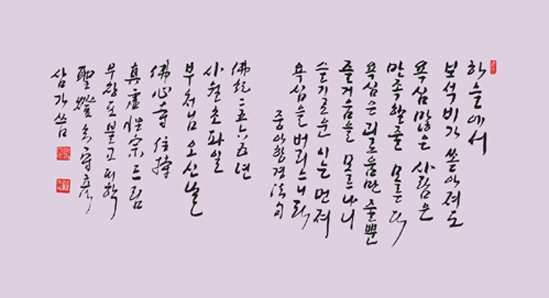 하늘에서
보석비가 쏟아져도
욕심 많은 사람은
만족할줄 모른다
욕심은 괴로움만 줄뿐
즐거움을 모르나니
슬기로운 이는 먼져
욕심을 버리느니라
중아함경 法句
佛紀 二五六五년
사월초파일
부처님 오신날
佛心寺 住持
真虛性宗 드림
무량도 불고
聖燈
삼가 씀